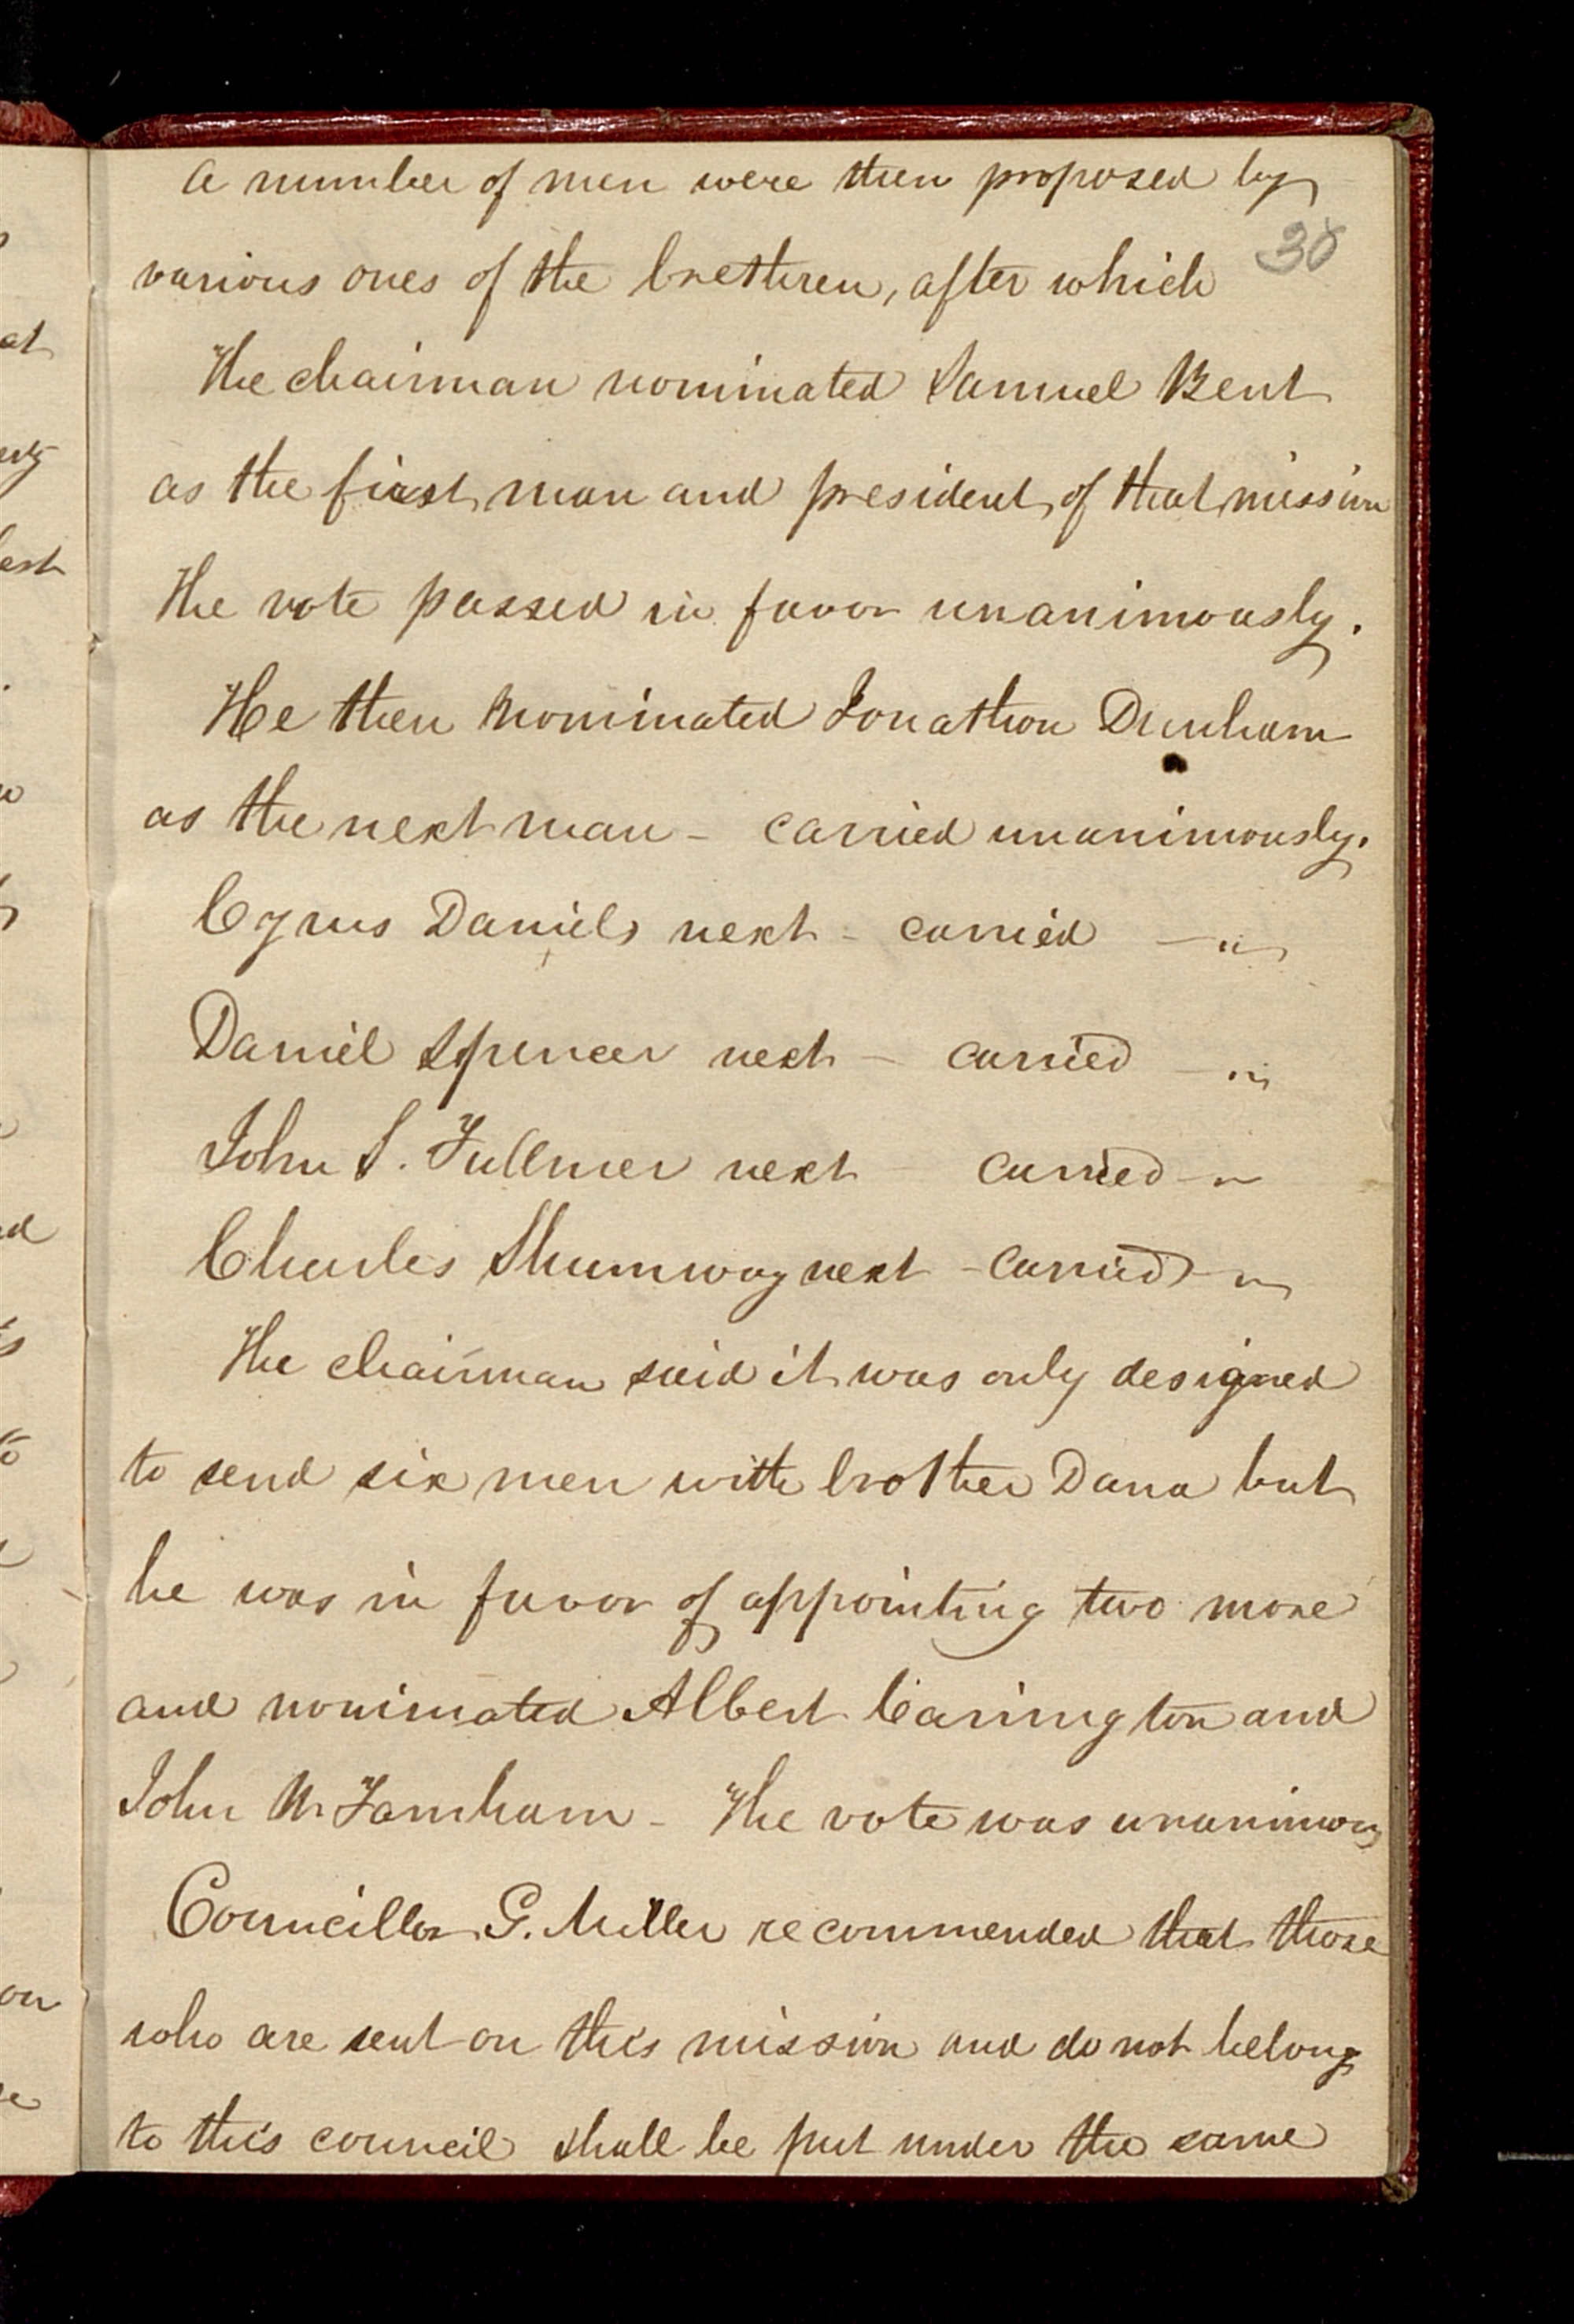 A number of men were then proposed by
38
various ones of the brethren, after which
The chairman nominated Samuel Bent
as the first man and president of that mission
The vote passed in favor unanimously.
He then nominated Jonathan Dunham
as the next man - carried unanimously.
Cyrus Daniels next - carried — "
Daniel Spencer next - carried — "
John S. Fullmer next carried - "
Charles Shumway next - carried - "
The chairman said it was only designed
to send six men with brother Dana but
he was in favor of appointing two more
and nominated Albert Carrington and
John W. Farnham - The vote was unanimous
Councillor G. Miller recommended that those
who are sent on this mission and do not belong
to this council shall be put under the same